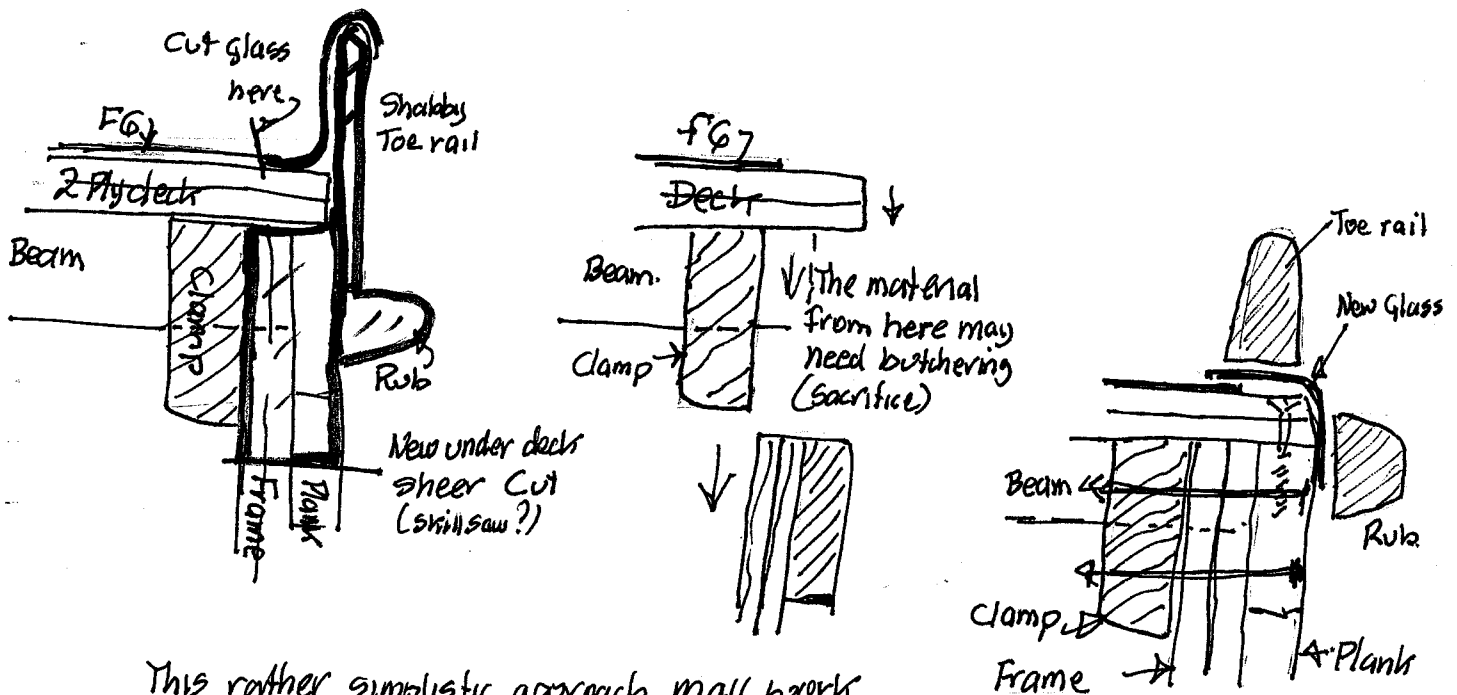 Cut glass
here
FG
Shabby
Toe rail
2 Ply deck
Beam
Clamp
Rub
New under deck
sheer Cut
(skillsaw?)
Frame
Plank
FG
Deck
Beam.
Clamp
The material
from here may
need butchering
(sacrifice)
Toe rail
New Glass
Beam
Rub.
Clamp
Frame
Plank
This rather simplistic approach may work